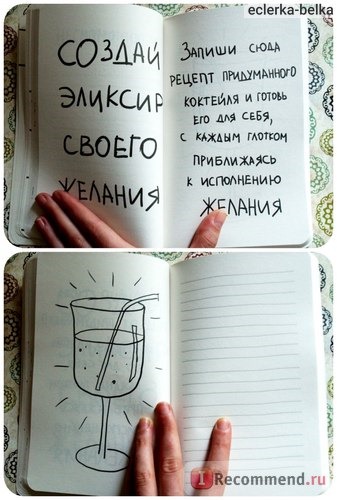 eclerka-belka
СОЗДАЙ
ЭЛИКСИР
СВОЕГО
ЖЕЛАНИЯ
ЗАПИШИ СЮДА
РЕЦЕПТ ПРИДУМАННОГО
КОКТЕЙЛЯ И ГОТОВЬ
ЕГО ДЛЯ СЕБЯ,
С КАЖДЫМ ГЛОТКОМ
ПРИБЛИЖАЯСЬ
К ИСПОЛНЕНИЮ
ЖЕЛАНИЯ
iRecommend.ru